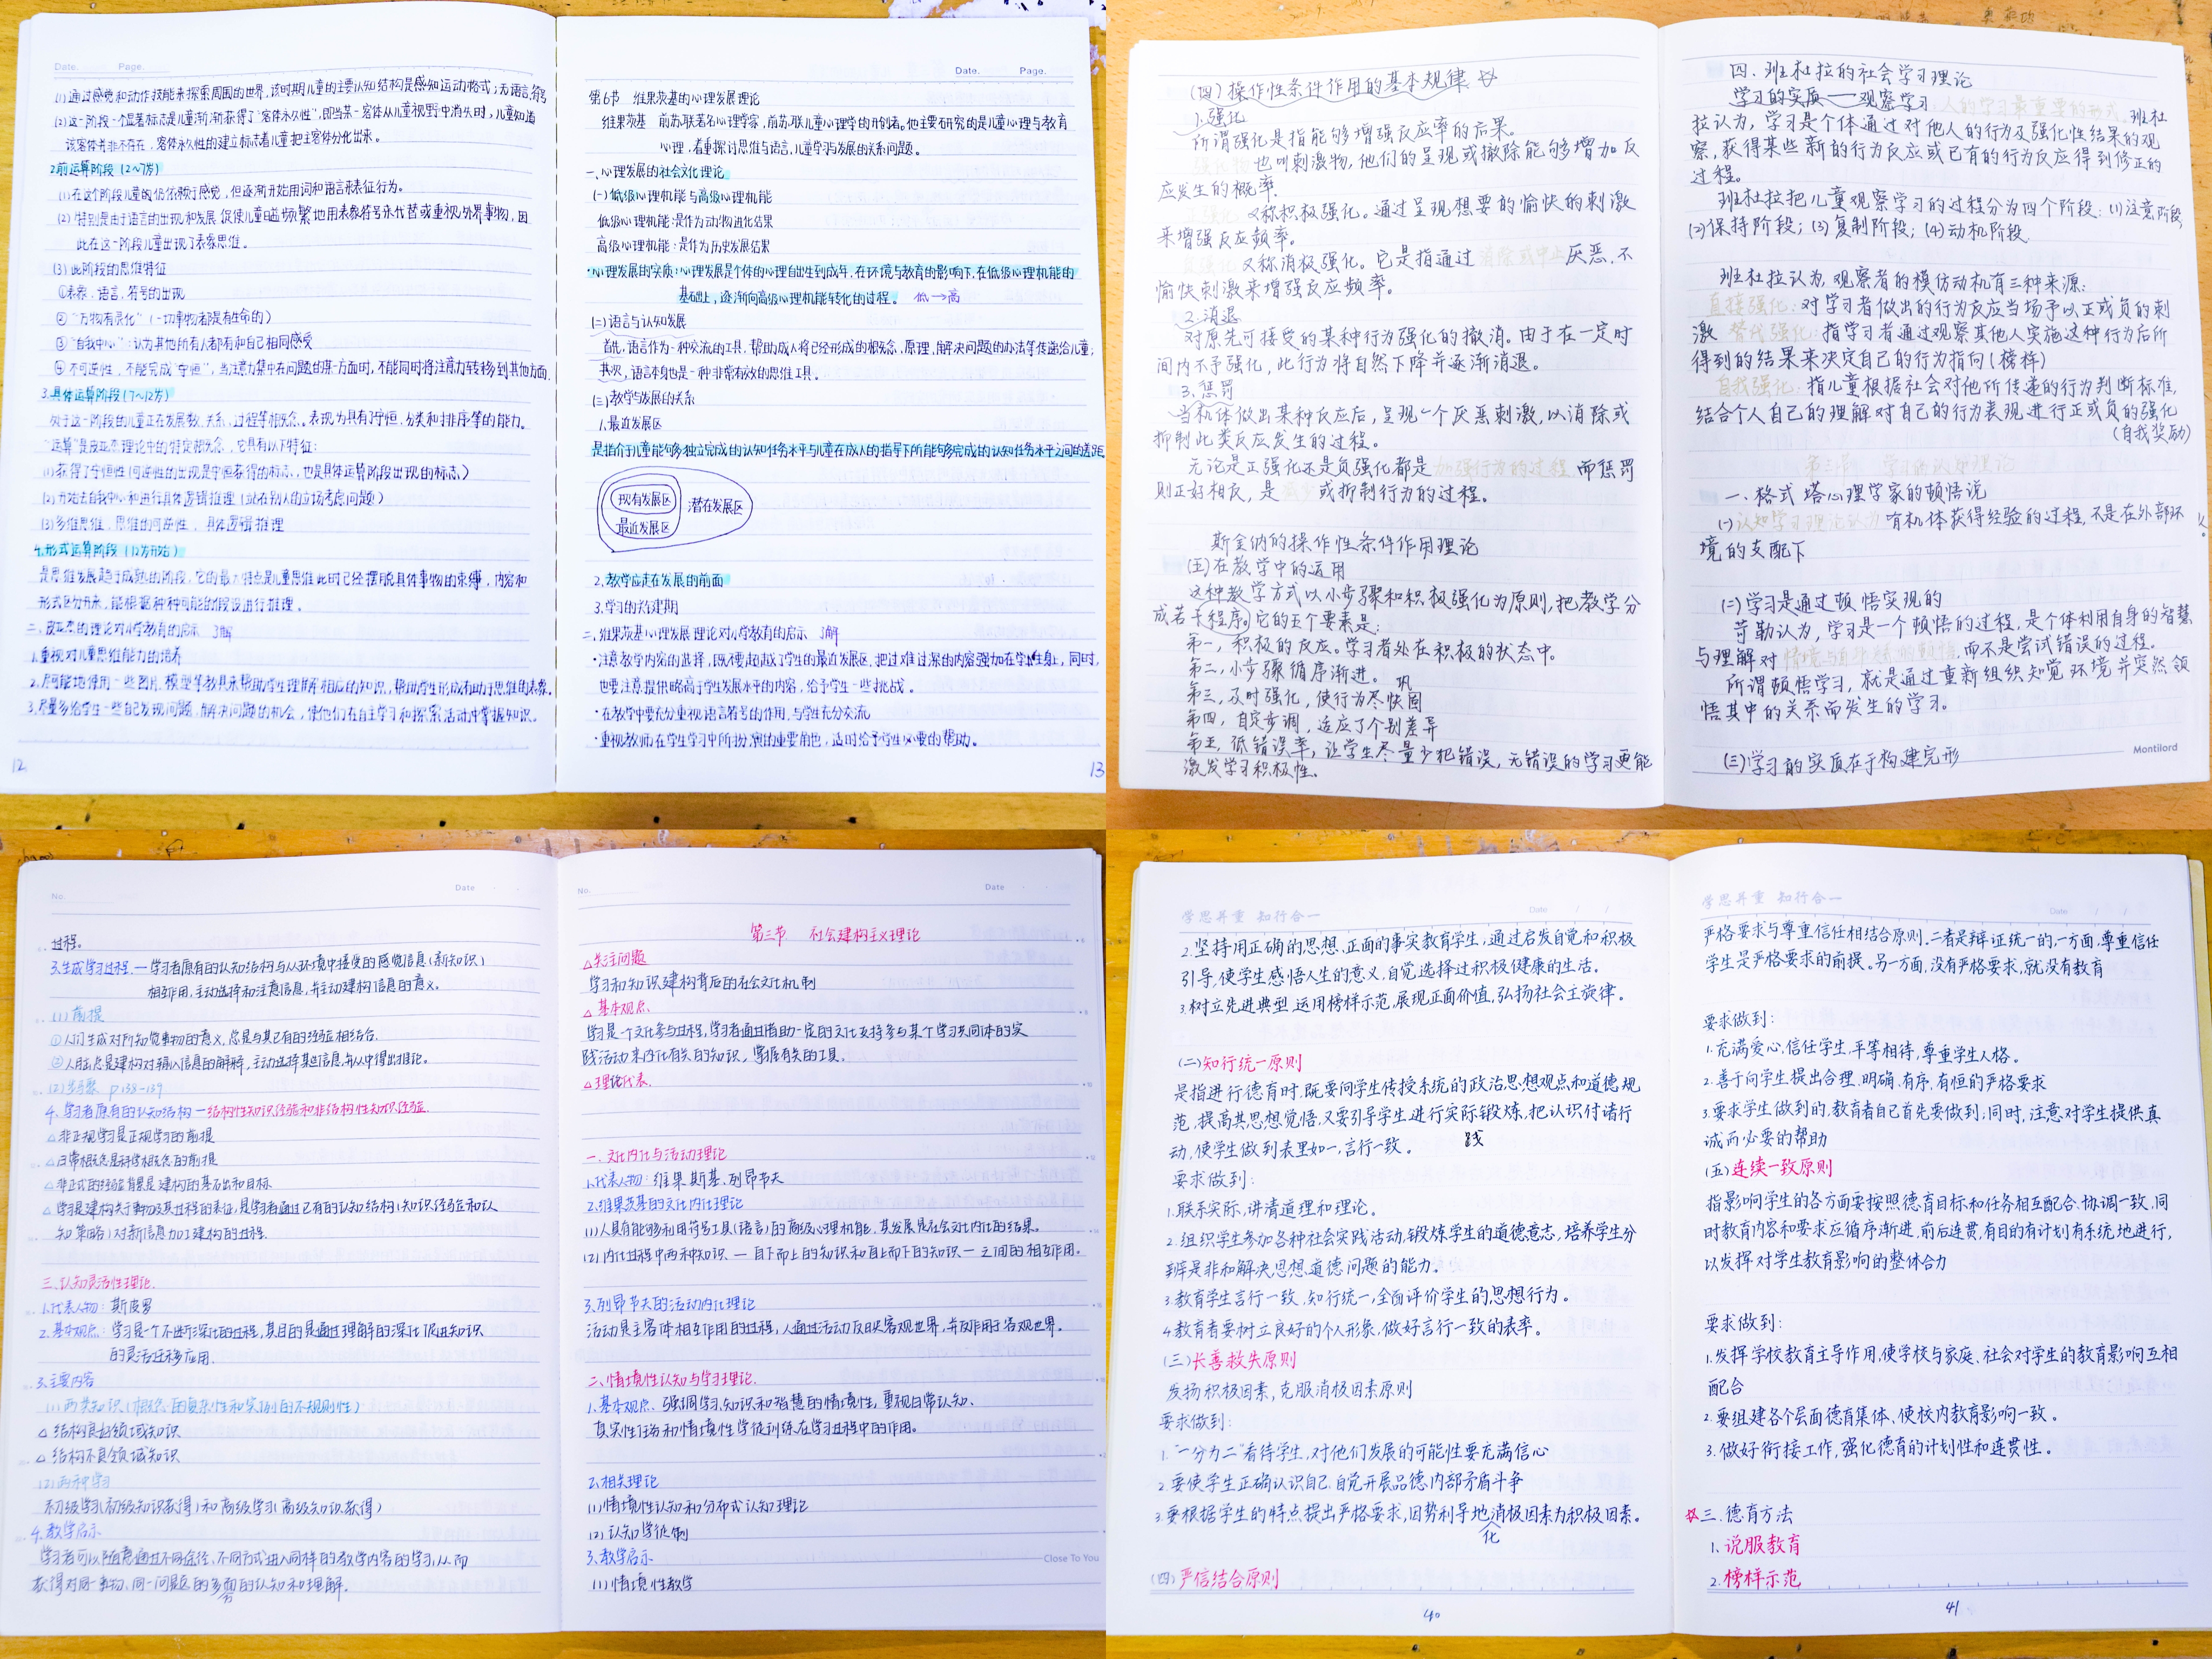 Date. Page.
(1)通过感觉和动作技能来探索周围的世界,该时期儿童的主要认知结构是感知运动格式;无语言符号
(2)这一阶段一个显著标志是儿童渐渐获得了"客体永久性",即当某一客体从儿童视野中消失时,儿童知道
该客体并非不存在,客体永久性的建立标志着儿童把主客体分化出来。
2.前运算阶段(2~7岁)
(1)在这个阶段儿童的仍依赖于感觉,但逐渐开始用词和语言来表征行为。
(2)特别是由于语言的出现和发展,促使儿童日益频繁地用表象符号来代替或重视外界事物,因
此在这一阶段儿童出现了表象思维。
(3)此阶段的思维特征
①表象、语言、符号的出现
②"万物有灵化"(一切事物都是有生命的)
③"自我中心":认为其他所有人都有和自己相同感受
④不可逆性,不能完成"守恒",当注意力集中在问题的某一方面时,不能同时将注意力转移到其他方面.
3.具体运算阶段(7~12岁)
处于这一阶段的儿童正在发展数、关系、过程等相概念。表现为具有守恒,分类和排序等的能力。
"运算"是皮亚杰理论中的特定概念,它具有以下特征:
(1)获得了守恒性(可逆性的出现是守恒获得的标志,也是具体运算阶段出现的标志)
(2)开始去自我中心和进行具体逻辑推理(站在别人的立场考虑问题)
(3)多维思维,思维的可逆性,具体逻辑推理
4.形式运算阶段(12岁开始)
是思维发展趋于成熟的阶段,它的最大特点是儿童思维此时已经摆脱具体事物的束缚,内容和
形式区分开来,能根据种种可能的假设进行推理。
二、皮亚杰的理论对小学教育的启示 了解
1.重视对儿童思维能力的培养
2.尽可能地使用一些图片、模型等教具来帮助学生理解相应的知识,帮助学生形成有助于思维的表象.
3.尽量多给学生一些自己发现问题、解决问题的机会,使他们在自主学习和探索活动中掌握知识。
12
Date. Page.
第6节 维果茨基的心理发展理论
维果茨基 前苏联著名心理学家,前苏联儿童心理学的开创者。他主要研究的是儿童心理与教育
心理,着重探讨思维与语言,儿童学习与发展的关系问题。
一、心理发展的社会文化理论
(一)低级心理机能与高级心理机能
低级心理机能:是作为动物进化结果
高级心理机能:是作为历史发展结果
·心理发展的实质:心理发展是个体的心理自出生到成年,在环境与教育的影响下,在低级心理机能的
基础上,逐渐向高级心理机能转化的过程。 低→高
(二)语言与认知发展
首先,语言作为一种交流的工具,帮助成人将已经形成的概念、原理、解决问题的办法等传递给儿童;
其次,语言本身也是一种非常有效的思维工具。
(三)教学与发展的关系
1.最近发展区
是指介于儿童能够独立完成的认知任务水平与儿童在成人的指导下所能够完成的认知任务水平之间的差距.
现有发展区
最近发展区
潜在发展区
2.教学应走在发展的前面
3.学习的关键期
二、维果茨基心理发展理论对小学教育的启示 了解
·注意教学内容的选择,既不要超过了学生的最近发展区,把过难过深的内容强加在学生身上,同时,
也要注意提供略高于学生发展水平的内容,给予学生一些挑战。
·在教学中要充分重视语言符号的作用,与学生充分交流
·重视教师在学生学习中所扮演的重要角色,适时给予学生必要的帮助。
13
(四)操作性条件作用的基本规律
1.强化
所谓强化是指能够增强反应率的后果。
也叫刺激物,他们的呈现或撤除能够增加反
应发生的概率.
又称积极强化。通过呈现想要的愉快的刺激
来增强反应频率。
又称消极强化。它是指通过消除或中止厌恶、不
愉快刺激来增强反应频率。
2.消退
对原先可接受的某种行为强化的撤消。由于在一定时
间内不予强化,此行为将自然下降并逐渐消退。
3.惩罚
当机体做出某种反应后,呈现一个厌恶刺激,以消除或
抑制此类反应发生的过程。
无论是正强化还是负强化都是加强行为的过程,而惩罚
则正好相反,是 或抑制行为的过程。
斯金纳的操作性条件作用理论
(五)在教学中的运用
这种教学方式以小步骤和积极强化为原则,把教学分
成若干程序,它的五个要素是:
第一,积极的反应。学习者处在积极的状态中。
第二,小步骤循序渐进。
第三,及时强化,使行为尽快固
巩
第四,自定步调,适应了个别差异
第五,低错误率,让学生尽量少犯错误,无错误的学习更能
激发学习积极性。
四、班杜拉的社会学习理论
学习的实质——观察学习 人的学习最重要的形式. 班杜
拉认为,学习是个体通过对他人的行为及强化性结果的观
察,获得某些新的行为反应或已有的行为反应得到修正的
过程。
班杜拉把儿童观察学习的过程分为四个阶段:(1)注意阶段
(2)保持阶段;(3)复制阶段;(4)动机阶段.
班杜拉认为,观察者的模仿动机有三种来源:
直接强化:对学习者做出的行为反应当场予以正或负的刺
激 替代强化:指学习者通过观察其他人实施这种行为后所
得到的结果来决定自己的行为指向(榜样)
自我强化:指儿童根据社会对他所传递的行为判断标准,
结合个人自己的理解对自己的行为表现进行正或负的强化
(自我奖励)
第三节 学习的认知理论
一、格式塔心理学家的顿悟说
(一)认知学习理论认为 有机体获得经验的过程,不是在外部环
境的支配下
(二)学习是通过顿悟实现的
苛勒认为,学习是一个顿悟的过程,是个体利用自身的智慧
与理解对 而不是尝试错误的过程。
所谓顿悟学习,就是通过重新组织知觉环境并突然领
悟其中的关系而发生的学习。
(三)学习的实质在于构建完形
Montilord
No. Date
过程。
3.生成学习过程—学习者原有的认知结构与从环境中接受的感觉信息(新知识)
相互作用,主动选择和注意信息,并主动建构信息的意义。
(1)前提
①人们生成对所知觉事物的意义,总是与其已有的经验相结合.
②人脑总是建构对输入信息的解释,主动选择某些信息,并从中得出推论。
(2)步骤 P138-139
4.学习者原有的认知结构—结构性知识经验和非结构性知识经验.
△非正规学习是正规学习的前提
△日常概念是科学概念的前提
△非正式的经验背景是建构的基础和目标
△学习是建构关于事物及其过程的表征,是学习者通过已有的认知结构(知识经验和认
知策略)对新信息加工建构的过程.
三、认知灵活性理论.
1.代表人物:斯皮罗
2.基本观点:学习是一个不断深化的过程,其目的是通过理解的深化促进知识
的灵活迁移应用.
3.主要内容
(1)两类知识(概念的复杂性和实例的不规则性)
△结构良好领域知识
△结构不良领域知识
(2)两种学习
初级学习(初级知识获得)和高级学习(高级知识获得)
4.教学启示
学习者可以随意通过不同途径、不同方式进入同样的教学内容的学习,从而
获得对同一事物、同一问题的多面的认知和理解.
方
No. Date
第三节 社会建构主义理论
△关注问题
学习和知识建构背后的社会文化机制
△基本观点.
学习是一个文化参与过程,学习者通过借助一定的文化支持参与某个学习共同体的实
践活动来内化有关的知识,掌握有关的工具.
△理论代表.
一、文化内化与活动理论
1.代表人物:维果斯基、列昂节夫
2.维果茨基的文化内化理论
(1)人具有能够利用符号工具(语言)的高级心理机能,其发展是社会文化内化的结果。
(2)内化过程中两种知识—自下而上的知识和自上而下的知识—之间的相互作用。
3.列昂节夫的活动内化理论
活动是主客体相互作用的过程,人通过活动反映客观世界,并反作用于客观世界.
二、情境性认知与学习理论.
1.基本观点.强调学习、知识和智慧的情境性,重视日常认知、
真实性任务和情境性学徒训练在学习过程中的作用。
2.相关理论
(1)情境性认知和分布式认知理论
(2)认知学徒制
3.教学启示
(1)情境性教学
Close To You
学思并重 知行合一
Date / /
2.坚持用正确的思想、正面的事实教育学生,通过启发自觉和积极
引导,使学生感悟人生的意义,自觉选择过积极健康的生活。
3.树立先进典型,运用榜样示范,展现正面价值,弘扬社会主旋律。
(二)知行统一原则
是指进行德育时,既要向学生传授系统的政治思想观点和道德规
范,提高其思想觉悟,又要引导学生进行实际锻炼,把认识付诸行
动,使学生做到表里如一,言行一致。
践
要求做到:
1.联系实际,讲清道理和理论。
2.组织学生参加各种社会实践活动,锻炼学生的道德意志,培养学生分
辨是非和解决思想道德问题的能力。
3.教育学生言行一致,知行统一,全面评价学生的思想行为。
4.教育者要树立良好的个人形象,做好言行一致的表率。
(三)长善救失原则
发扬积极因素,克服消极因素原则
要求做到:
1."一分为二"看待学生,对他们发展的可能性要充满信心
2.要使学生正确认识自己,自觉开展品德内部矛盾斗争
3.要根据学生的特点提出严格要求,因势利导地消极因素为积极因素。
化
(四)严信结合原则
40
学思并重 知行合一
Date / /
严格要求与尊重信任相结合原则.二者是辩证统一的,一方面,尊重信任
学生是严格要求的前提。另一方面,没有严格要求,就没有教育
要求做到:
1.充满爱心,信任学生,平等相待,尊重学生人格。
2.善于向学生提出合理、明确、有序、有恒的严格要求
3.要求学生做到的,教育者自己首先要做到;同时,注意对学生提供真
诚而必要的帮助
(五)连续一致原则
指影响学生的各方面要按照德育目标和任务相互配合、协调一致,同
时教育内容和要求应循序渐进,前后连贯,有目的有计划有系统地进行,
以发挥对学生教育影响的整体合力
要求做到:
1.发挥学校教育主导作用,使学校与家庭、社会对学生的教育影响互相
配合
2.要组建各个层面德育集体、使校内教育影响一致。
3.做好衔接工作,强化德育的计划性和连贯性。
☆三、德育方法
1.说服教育
2.榜样示范
41